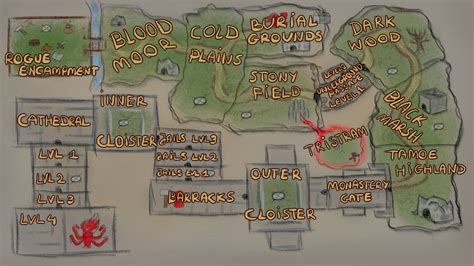 ROGUE
ENCAMPMENT
BLOOD
MOOR
COLD
PLAINS
BURIAL
GROUNDS
STONY
FIELD
DARK
WOOD
LEVEL 2
UNDERGROUND
PASSAGE
LEVEL 1
BLACK
MARSH
TAMOE
HIGHLAND
TRISTRAM
MONASTERY
GATE
OUTER
CLOISTER
BARRACKS
JAILS LVL 3
JAILS LVL 2
JAILS LVL 1
INNER
CLOISTER
CATHEDRAL
LVL 1
LVL 2
LVL 3
LVL 4